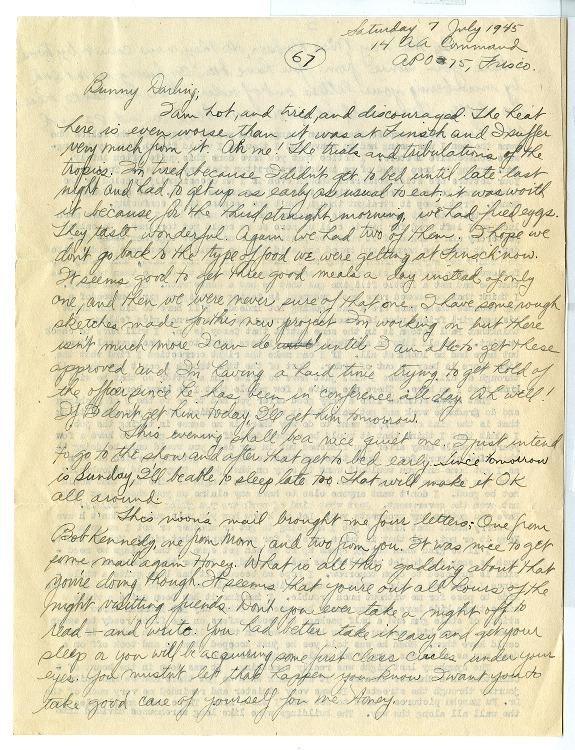 Saturday 7 July 1945
14 AA Command
APO 75, Frisco.
67
Bunny Darling,
I am hot, and tired, and discouraged. The heat
here is even worse than it was at Finsch and I suffer
very much from it. Ah me! The trials and tribulations of the
tropics. I'm tired because I didn't get to bed until late last
night and had to get up as early as usual to eat. it was worth
it because, for the third straight morning, we had fried eggs.
They taste wonderful. Again we had two of them. I hope we
don't go back to the type of food we were getting at Finsch now.
It seems good to get three good meals a day instead of only
one, and then we were never sure of that one. I have some rough
sketches made for this new project I'm working on but there
isn't much more I can do until I am able to get these
approved and I'm having a hard time trying to get hold of
the officer since he has been in conference all day. Ah well!
If I don't get him today, I'll get him tomorrow.
This evening shall be a nice quiet one. I just intend
to go to the show and after that get to bed early. Since tomorrow
is Sunday, I'll be able to sleep late too. That will make it OK
all around.
This noon's mail brought me four letters; One from
Bob Kennedy, one from Mom, and two from you. It was nice to get
some mail again Honey. What is all this gadding about that
you're doing though. It seems that you're out all hours of the
night visitting friends. Don't you ever take a night off to
read — and write. You had better take it easy and get your
sleep or you will be acquiring some first class circles under your
eyes. You mustn't let that happen you know. I want you to
take good care of yourself for me Honey.